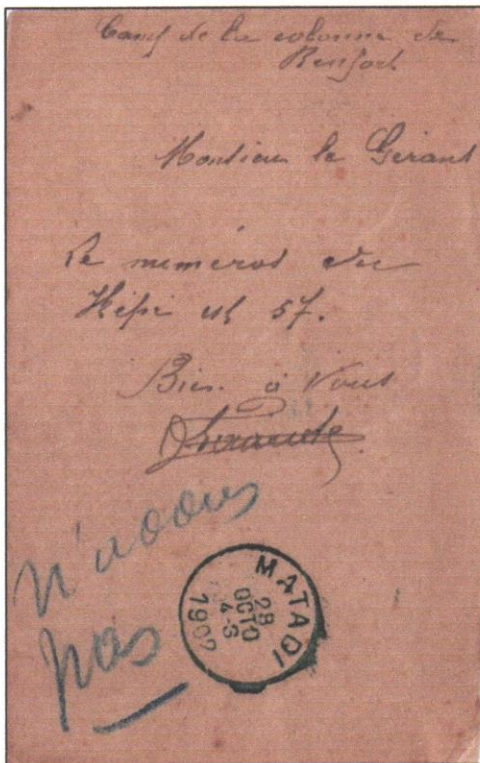 Camp de la colonne de
Renfort
Monsieur le Gérant
Le numéros du
Képi est 57.
Bien à Vous
N'avons
pas
MATADI
28
OCTO
4-S
190